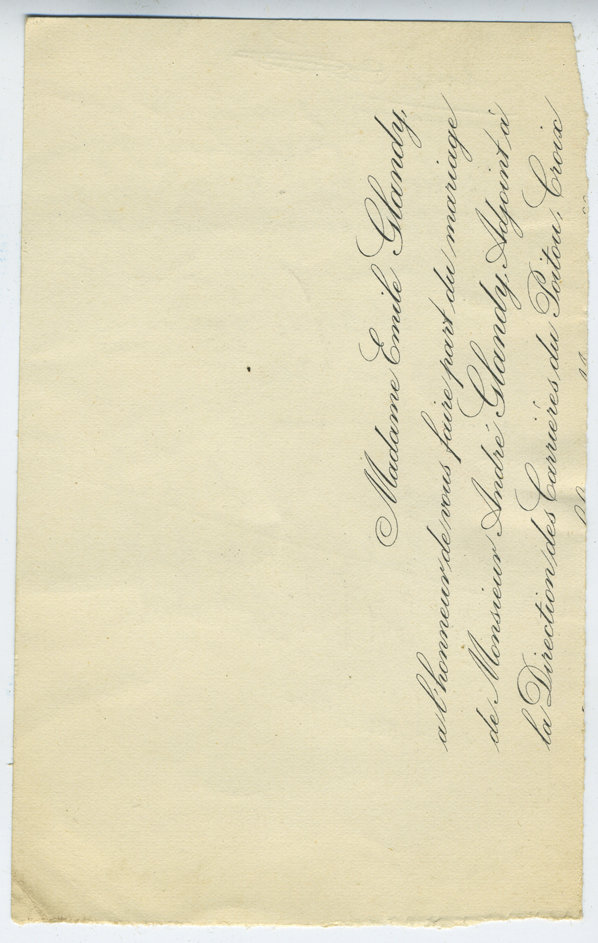 Madame Emile Glandy,
a l'honneur de vous faire part du mariage
de Monsieur André Glandy, Adjoint à
la Direction des Carrières du Poitou, Croix